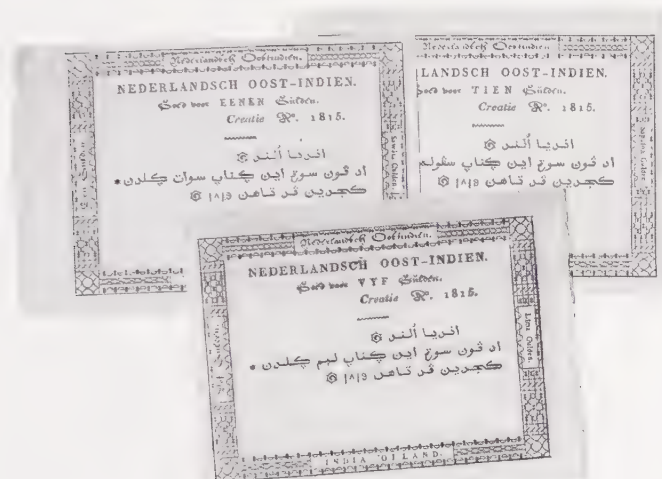 Nederlandsch Oostindien.
NEDERLANDSCH OOST-INDIEN.
Goed voor EENEN Gulden.
Creatie Aº. 1815.
اندیا اُلند
اد ڤون سوڠ این کتاب سوات کلدن *
کجرین ڤر تاهن ١٨١٥
Gulden.
Nederlandsch Oostindien
LANDSCH OOST-INDIEN.
Goed voor TIEN Gulden.
Creatie Aº. 1815.
اندیا اُلند
اد ڤون سوڠ این کتاب
کجرین ڤر تاهن ١٨١٥
Sapulu Gulden.
Nederlandsch Oostindien.
NEDERLANDSCH OOST-INDIEN.
Goed voor VYF Gulden.
Creatie Aº. 1815.
اندیا اُلند
اد ڤون سوڠ این کتاب لیم کلدن *
کجرین ڤر تاهن ١٨١٥
Lima Gulden.
INDIA OLLAND.